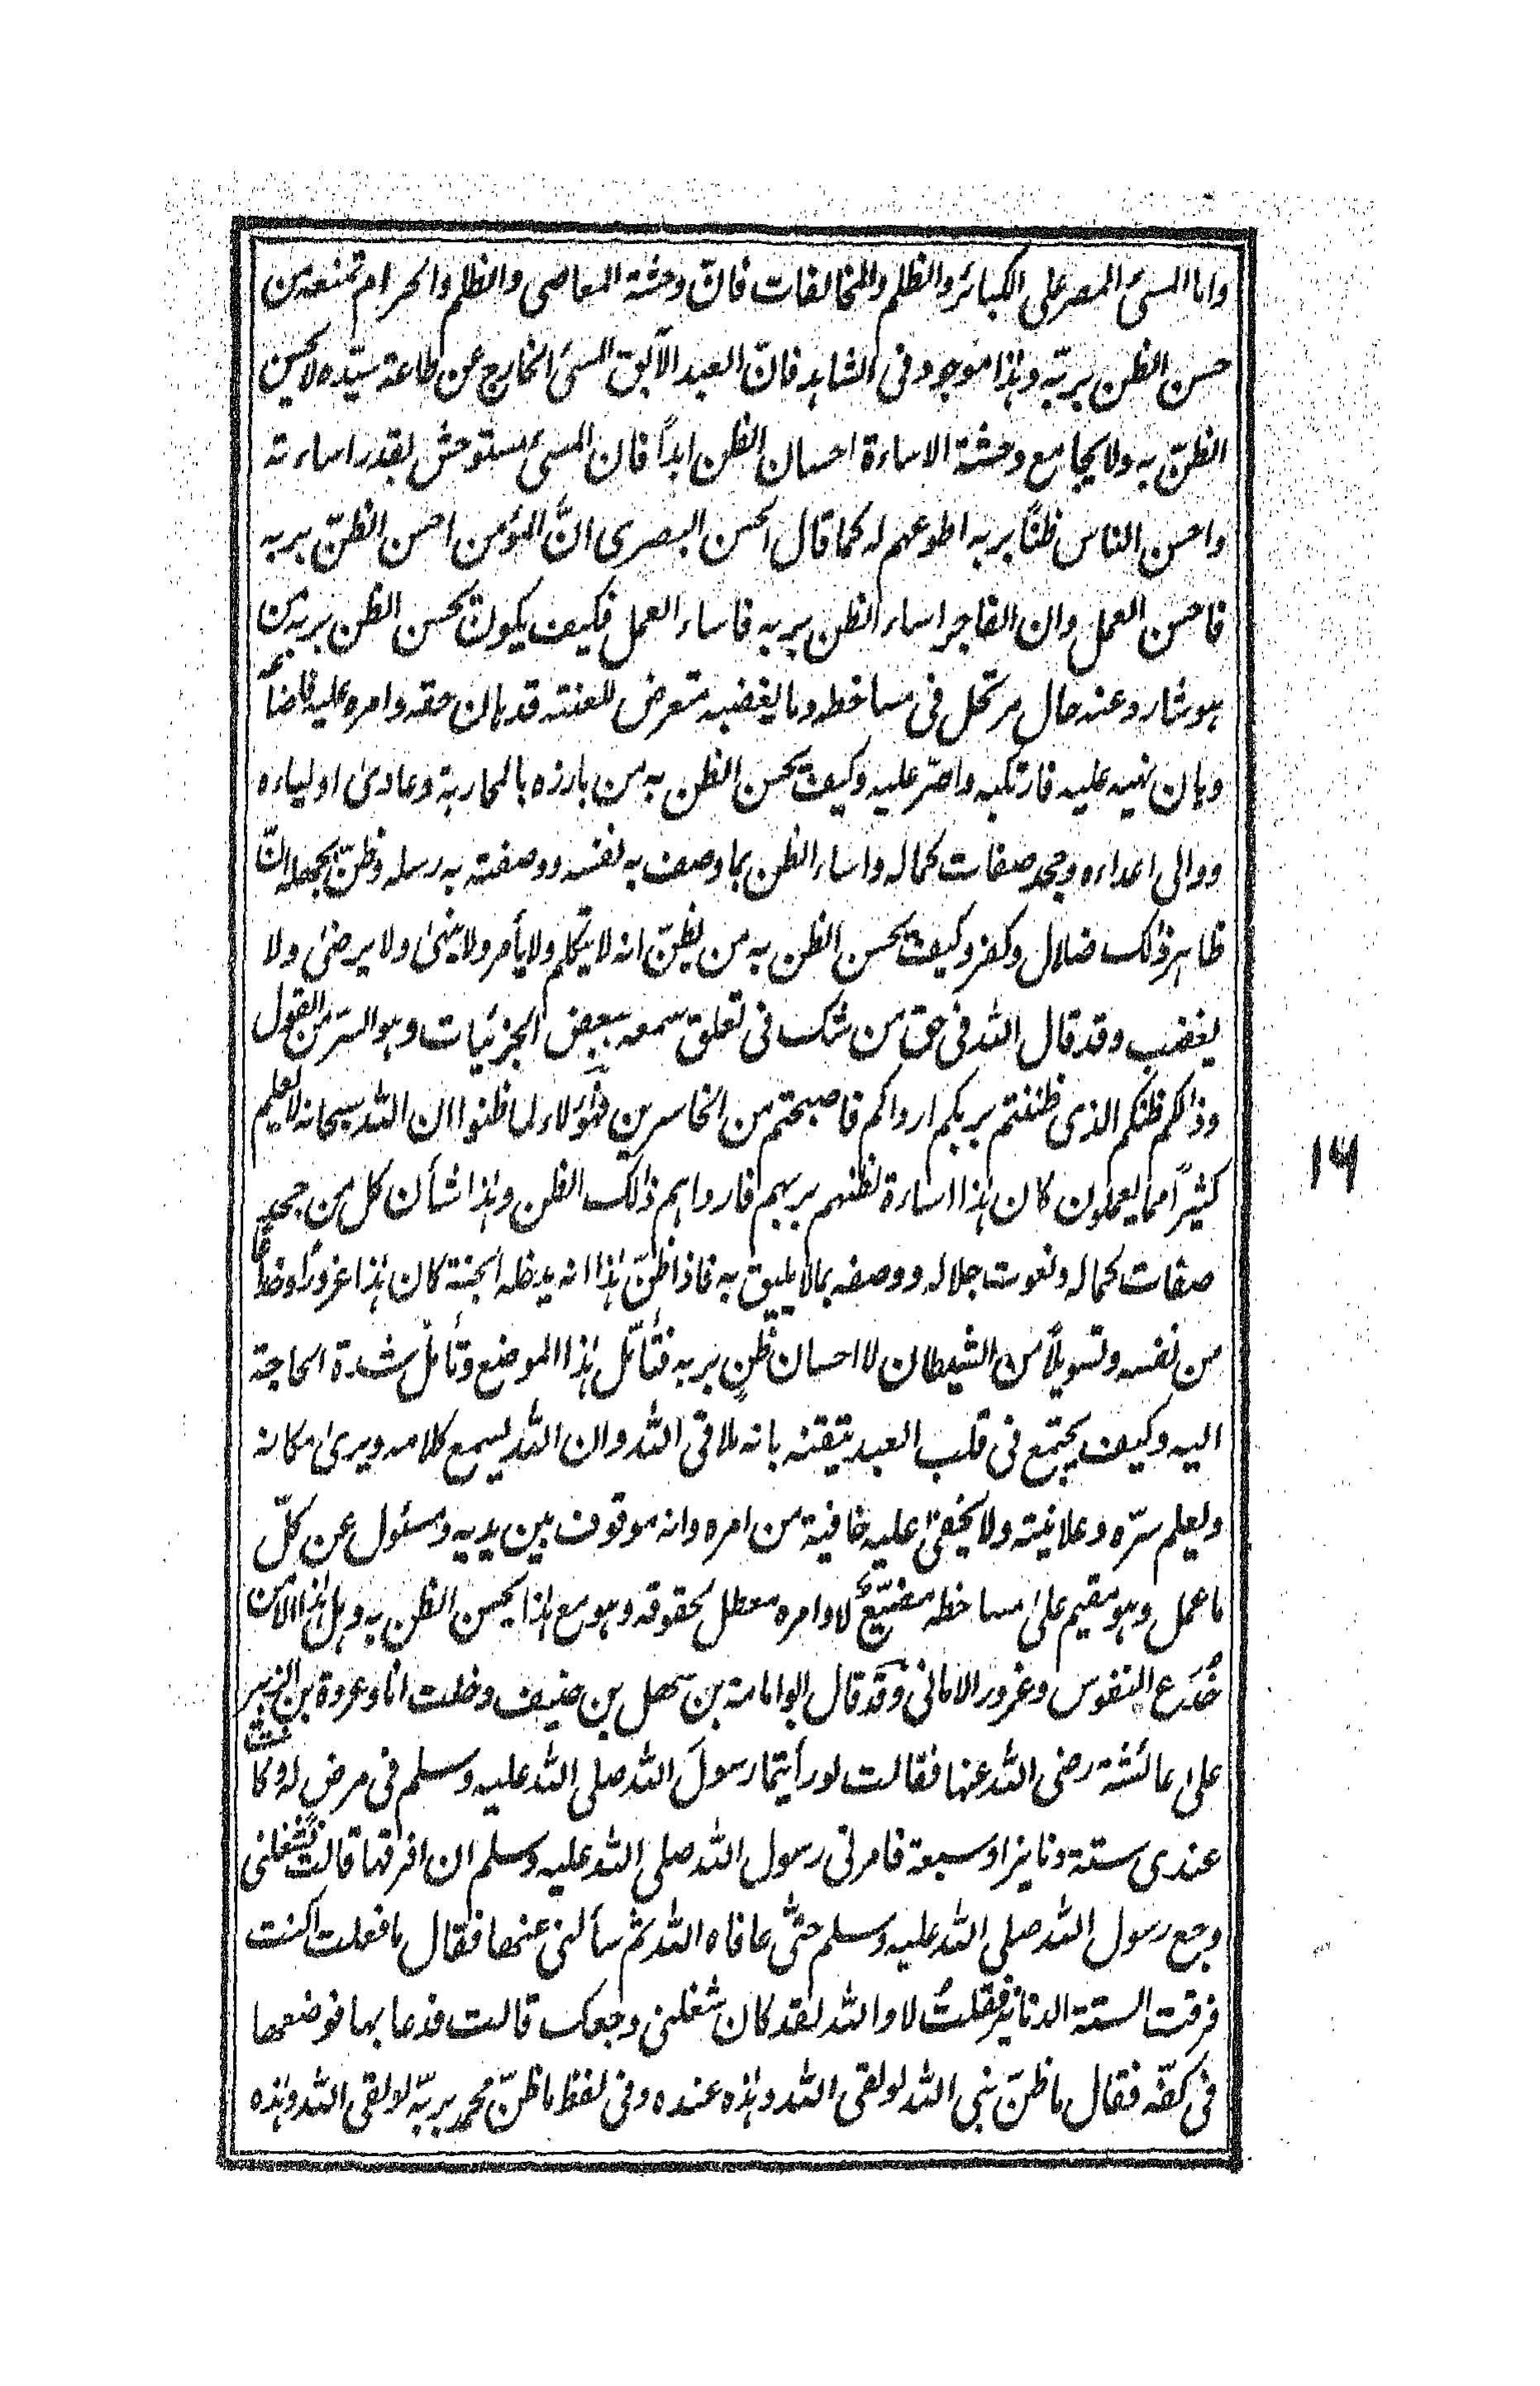 واما المسئ المصر على الكبائر والظلم والمخالفات فانّ وحشة المعاصى والظلم والحرام تمنعه من
حسن الظن بربّه وهذا موجود فى الشاهد فانّ العبد الآبق المسئ الخارج عن طاعة سيّده لا يحسن
الظنّ به ولا يجامع وحشة الاساءة احسان الظن ابداً فان المسئ مستوحش بقدر اساءته
واحسن الناس ظنّاً بربه اطوعهم له كما قال الحسن البصرى انّ المؤمن احسن الظنّ بربه
فاحسن العمل وان الفاجر اساء الظن بربه فاساء العمل فكيف يكون يحسن الظن بربه من
هو شارد عنه حال مرتحل فى مساخطه وما يغضبه متعرض للعنته قد هان حقه وامره عليه فاضاعه
وهان نهيه عليه فارتكبه واصرّ عليه وكيف يحسن الظن به من بارزه بالمحاربة وعادىٰ اولياءه
ووالى اعداءه وجحد صفات كماله واساء الظن بما وصف به نفسه ووصفته به رسله وظنّ بجهله انّ
ظاهر ذلك ضلال وكفر وكيف يحسن الظن به من يظنّ انه لا يتكلم ولا يأمر ولا ينهىٰ ولا يرضىٰ ولا
يغضب وقد قال الله فى حق من شك فى تعلق سمعه ببعض الجزئيات وهو السر من القول
وذلكم ظنكم الذى ظننتم بربكم ارداكم فاصبحتم من الخاسرين فهٰؤلاء لما ظنوا ان الله سبحانه لا يعلم
كثيراً مما يعملون كان هٰذا اساءة لظنهم بربهم فارداهم ذٰلك الظن وهٰذا شأن كل من جحد
صفات كماله ونعوت جلاله ووصفه بما لا يليق به فاذا ظنّ هٰذا انه يدخله الجنة كان هٰذا غروراً وخداعاً
من نفسه وتسويلاً من الشيطان لا احسان ظنٍّ بربه فتأمّل هٰذا الموضع وتأمل شدة الحاجة
اليه وكيف يجتمع فى قلب العبد تيقنه بانه ملاقى الله وان الله يسمع كلامه ويرىٰ مكانه
ويعلم سرّه وعلانيته ولا يخفىٰ عليه خافية من امره وانه موقوف بين يديه ومسئول عن كلّ
ما عمل وهو مقيم علىٰ مساخطه مضيّعٌ لاوامره معطل لحقوقه وهو مع هٰذا يحسن الظن به وهل هٰذا الا من
خُدَع النفوس وغرور الامانى وقد قال ابو امامة بن سهل بن حنيف دخلت انا وعروة بن الزبير
علىٰ عائشة رضى الله عنها فقالت لو رأيتما رسولَ الله صلى الله عليه وسلم فى مرض له وكانت
عندى ستة دنانير او سبعة فامرنى رسول الله صلى الله عليه وسلم ان افرقها قالت فشغلنى
وجع رسول الله صلى الله عليه وسلم حتّٰى عافاه الله ثم سألنى عنها فقال ما فعلت اكنت
فرقت الستة الدنانير فقلتُ لا والله لقد كان شغلنى وجعك قالت فدعا بها فوضعها
فى كفّه فقال ما ظنّ نبى الله لو لقى الله وهٰذه عنده وفى لفظ ما ظنّ محمد بربّه لو لقى الله وهٰذه
١٦